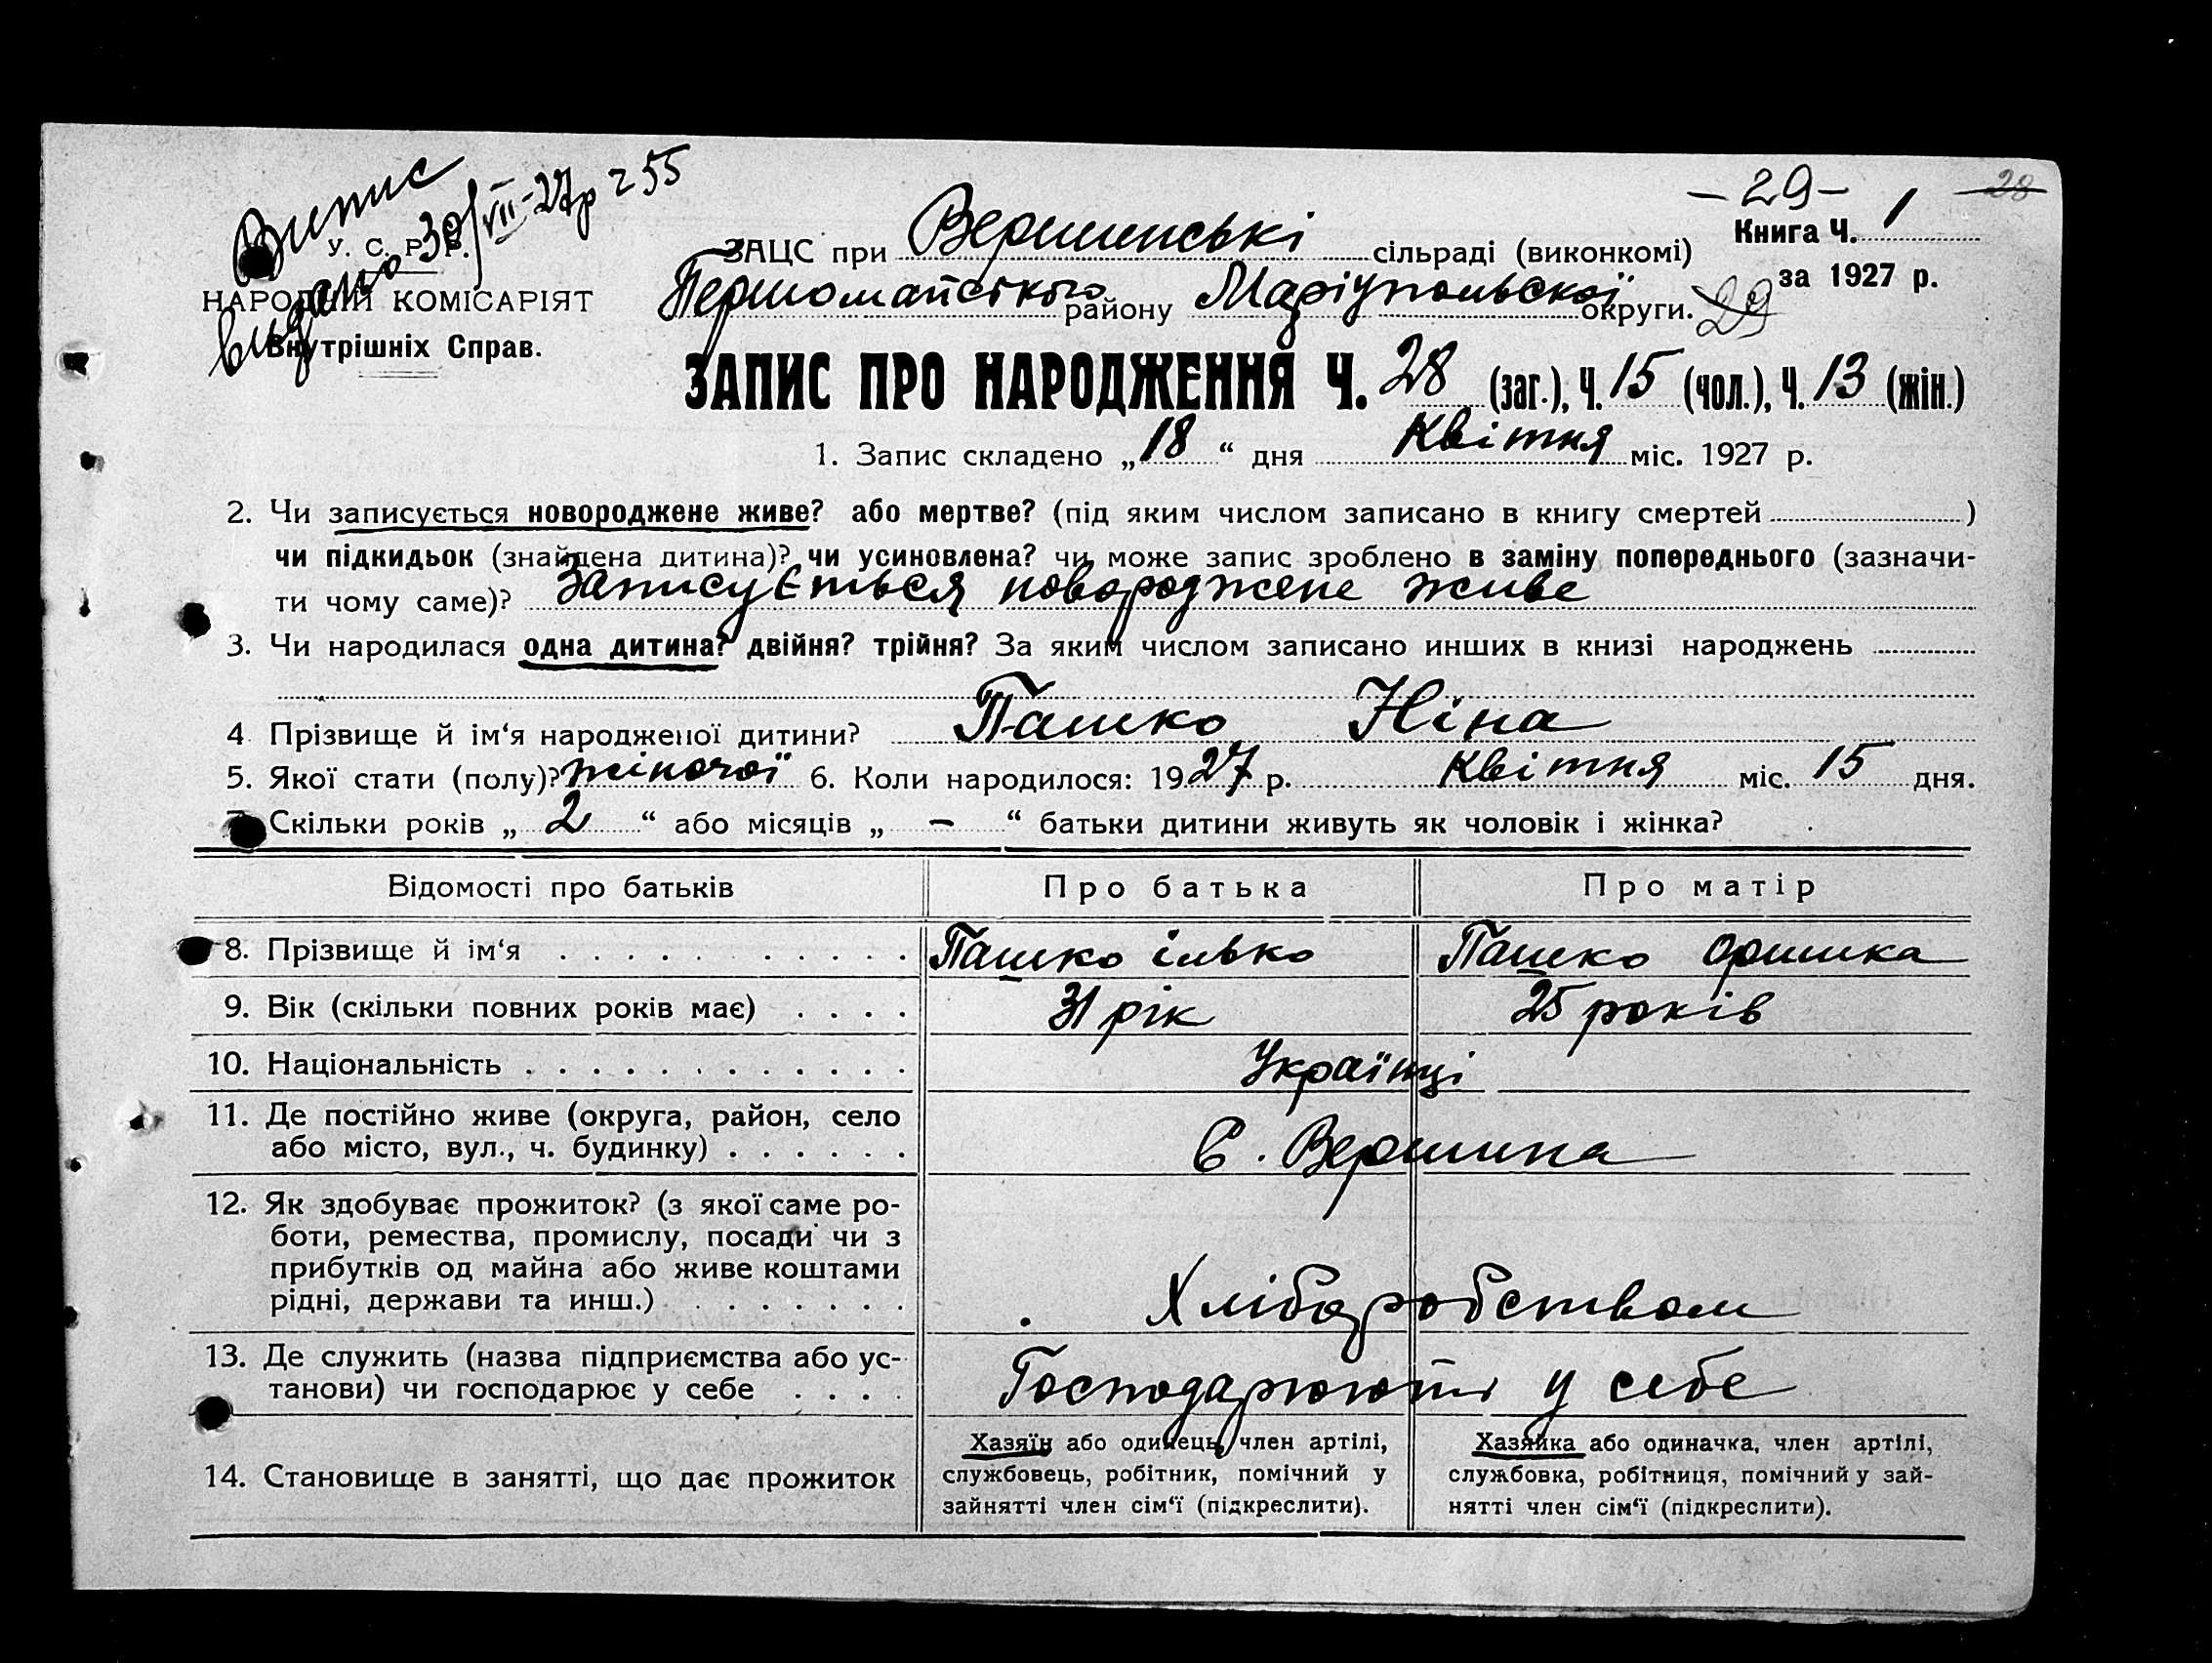 Витис
видано 30/VII-27р 255
-29-
28
У. С. Р. Р.
НАРОДНІЙ КОМІСАРІЯТ
Внутрішніх Справ.
ЗАЦС при Вершинські сільраді (виконкомі)
Книга Ч. 1
за 1927 р.
Першомайського району Маріупольскої округи.
29
ЗАПИС ПРО НАРОДЖЕННЯ Ч. 28 (заг.), Ч. 15 (чол.), Ч. 13 (жін.)
1. Запис складено „18“ дня Квітня міс. 1927 р.
2. Чи записується новороджене живе? або мертве? (під яким числом записано в книгу смертей )
чи підкидьок (знайдена дитина)? чи усиновлена? чи може запис зроблено в заміну попереднього (зазначи-
ти чому саме)? Записується новороджене живе
3. Чи народилася одна дитина? двійня? трійня? За яким числом записано инших в книзі народжень
4. Прізвище й ім‘я народженої дитини? Пашко Ніна
5. Якої стати (полу)? жіночої 6. Коли народилося: 1927 р. Квітня міс. 15 дня.
7. Скільки років „2“ або місяців „-“ батьки дитини живуть як чоловік і жінка?
Відомості про батьків Про батька Про матір
8. Прізвище й ім‘я . . . . . . . . . . . Пашко ілько Пашко оришка
9. Вік (скільки повних років має) . . . . 31 рік 25 років
10. Національність . . . . . . . . . . . . Українці
11. Де постійно живе (округа, район, село
або місто, вул., ч. будинку) . . . . . . С. Вершина
12. Як здобуває прожиток? (з якої саме ро-
боти, ремества, промислу, посади чи з
прибутків од майна або живе коштами
рідні, держави та инш.) . . . . . . . Хліборобством
13. Де служить (назва підприємства або ус-
танови) чи господарює у себе . . . . Господарюють у себе
14. Становище в занятті, що дає прожиток
Хазяїн або одинець, член артілі,
службовець, робітник, помічний у
зайнятті член сім‘ї (підкреслити).
Хазяйка або одиначка, член артілі,
службовка, робітниця, помічний у зай-
нятті член сім‘ї (підкреслити).